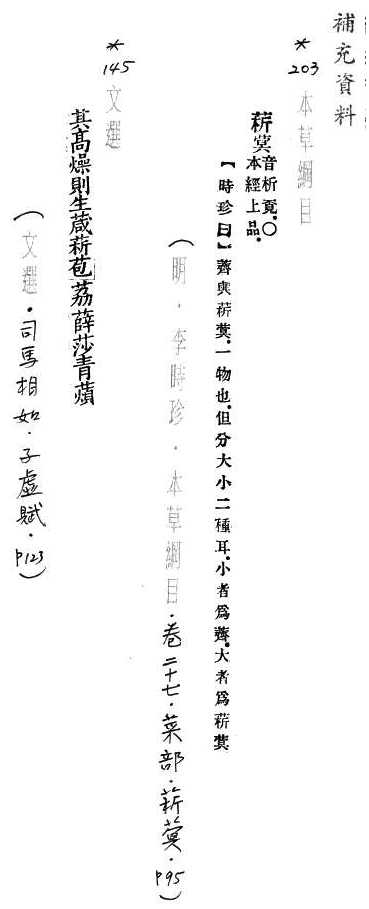 補充資料
*203 本草綱目
菥蓂音析覓。〇本經上品。
【時珍曰】薺與菥蓂、一物也、但分大小二種耳、小者爲薺、大者爲菥蓂
(明・李時珍・本草綱目・卷二十七・菜部・菥蓂・P95)
*145 文選
其高燥則生葴菥苞荔薜莎青薠
(文選・司馬相如・子虛賦・P123)